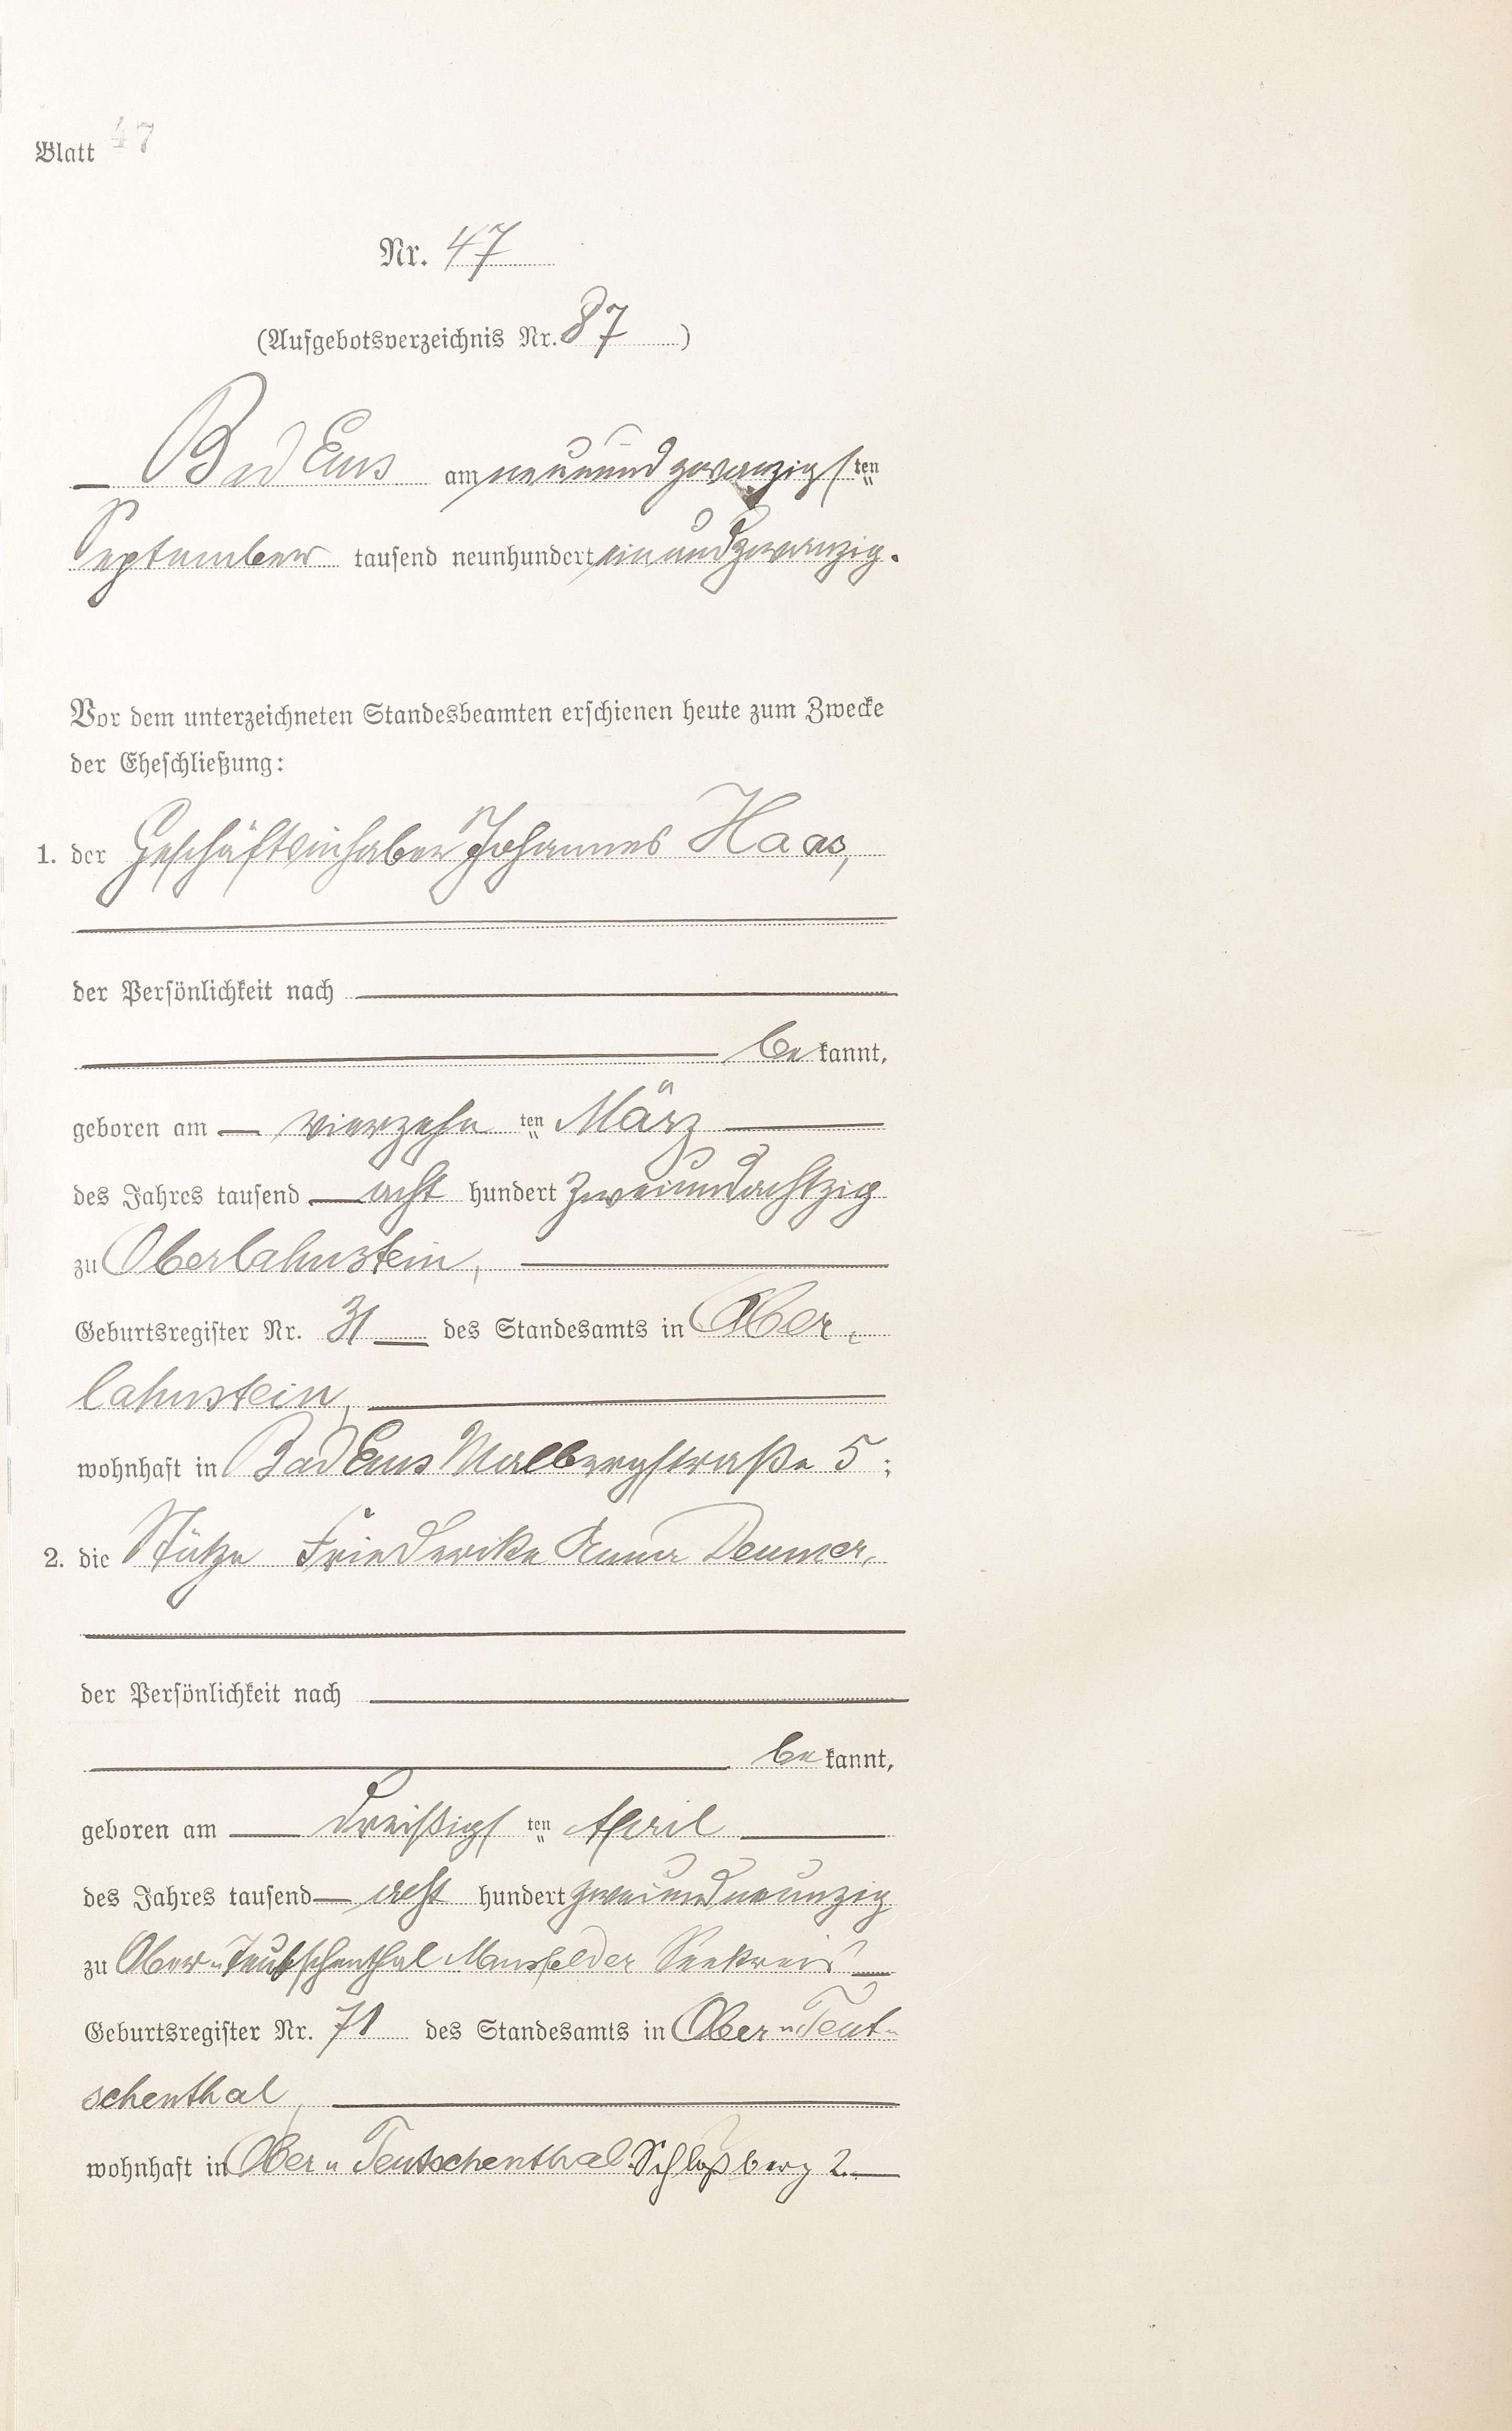 Blatt 47
Nr. 47
(Aufgebotsverzeichnis Nr. 87)
Bad Ems am neunundzwanzigsten
September tausend neunhundert einundzwanzig.
Vor dem unterzeichneten Standesbeamten erschienen heute zum Zwecke
der Eheschließung:
1. der Geschäftsinhaber Johannes Haas,
der Persönlichkeit nach
bekannt,
geboren am vierzehnten März
des Jahres tausend acht hundert zweiundachtzig
zu Oberlahnstein,
Geburtsregister Nr. 31 des Standesamts in Ober-
lahnstein,
wohnhaft in Bad Ems Malbergstraße 5;
2. die Stütze Friederike Anna Deumer,
der Persönlichkeit nach
bekannt,
geboren am dreißigsten April
des Jahres tausend acht hundert zweiundneunzig
zu Ober-Teutschenthal Mansfelder Seekreis
Geburtsregister Nr. 71 des Standesamts in Ober-Teut-
schenthal,
wohnhaft in Ober-Teutschenthal Schloßberg 2.